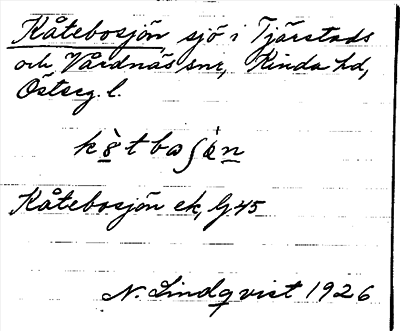 Kåtebosjön sjö i Tjärstads
och Vårdnäs snr, Kinda hd,
Österg. l.
Kåtebosjön ek, G. 45
N. Lindqvist 1926